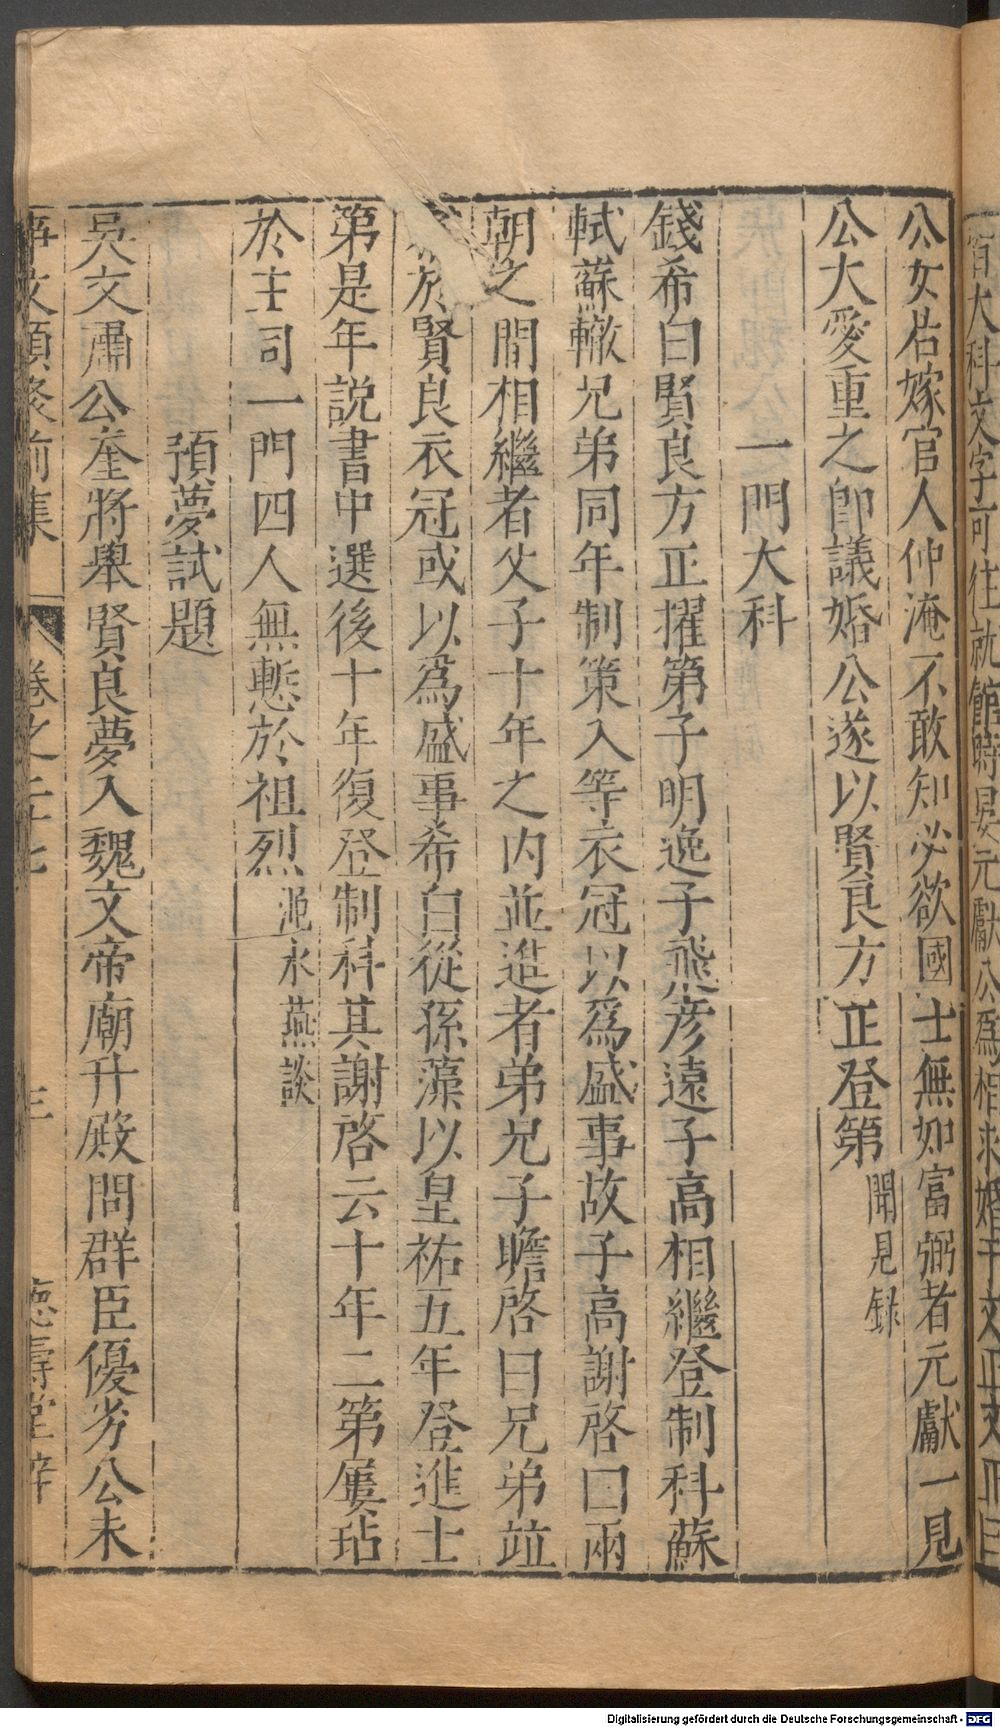 皆大科文字可往就館時晏元獻公爲相求婚于文正文正曰
公女若嫁官人仲淹不敢知必欲國士無如富弼者元獻一見
公大愛重之卽議婚公遂以賢良方正登第聞見錄
一門大科
錢希白賢良方正擢第子明逸子飛彥遠子高相繼登制科蘇
軾蘇轍兄弟同年制策入等衣冠以爲盛事故子高謝啓曰兩
朝之間相繼者父子十年之内並進者弟兄子瞻啓曰兄弟竝
於賢良衣冠或以爲盛事希白從孫藻以皇祐五年登進士
第是年説書中選後十年復登制科其謝啓云十年二第屢玷
於主司一門四人無慙於祖烈澠水燕談
預夢試題
吳文肅公奎將舉賢良夢入魏文帝廟升殿問群臣優劣公未
事文類聚前集 卷之二十七 三 德壽堂梓
Digitalisierung gefördert durch die Deutsche Forschungsgemeinschaft - DFG